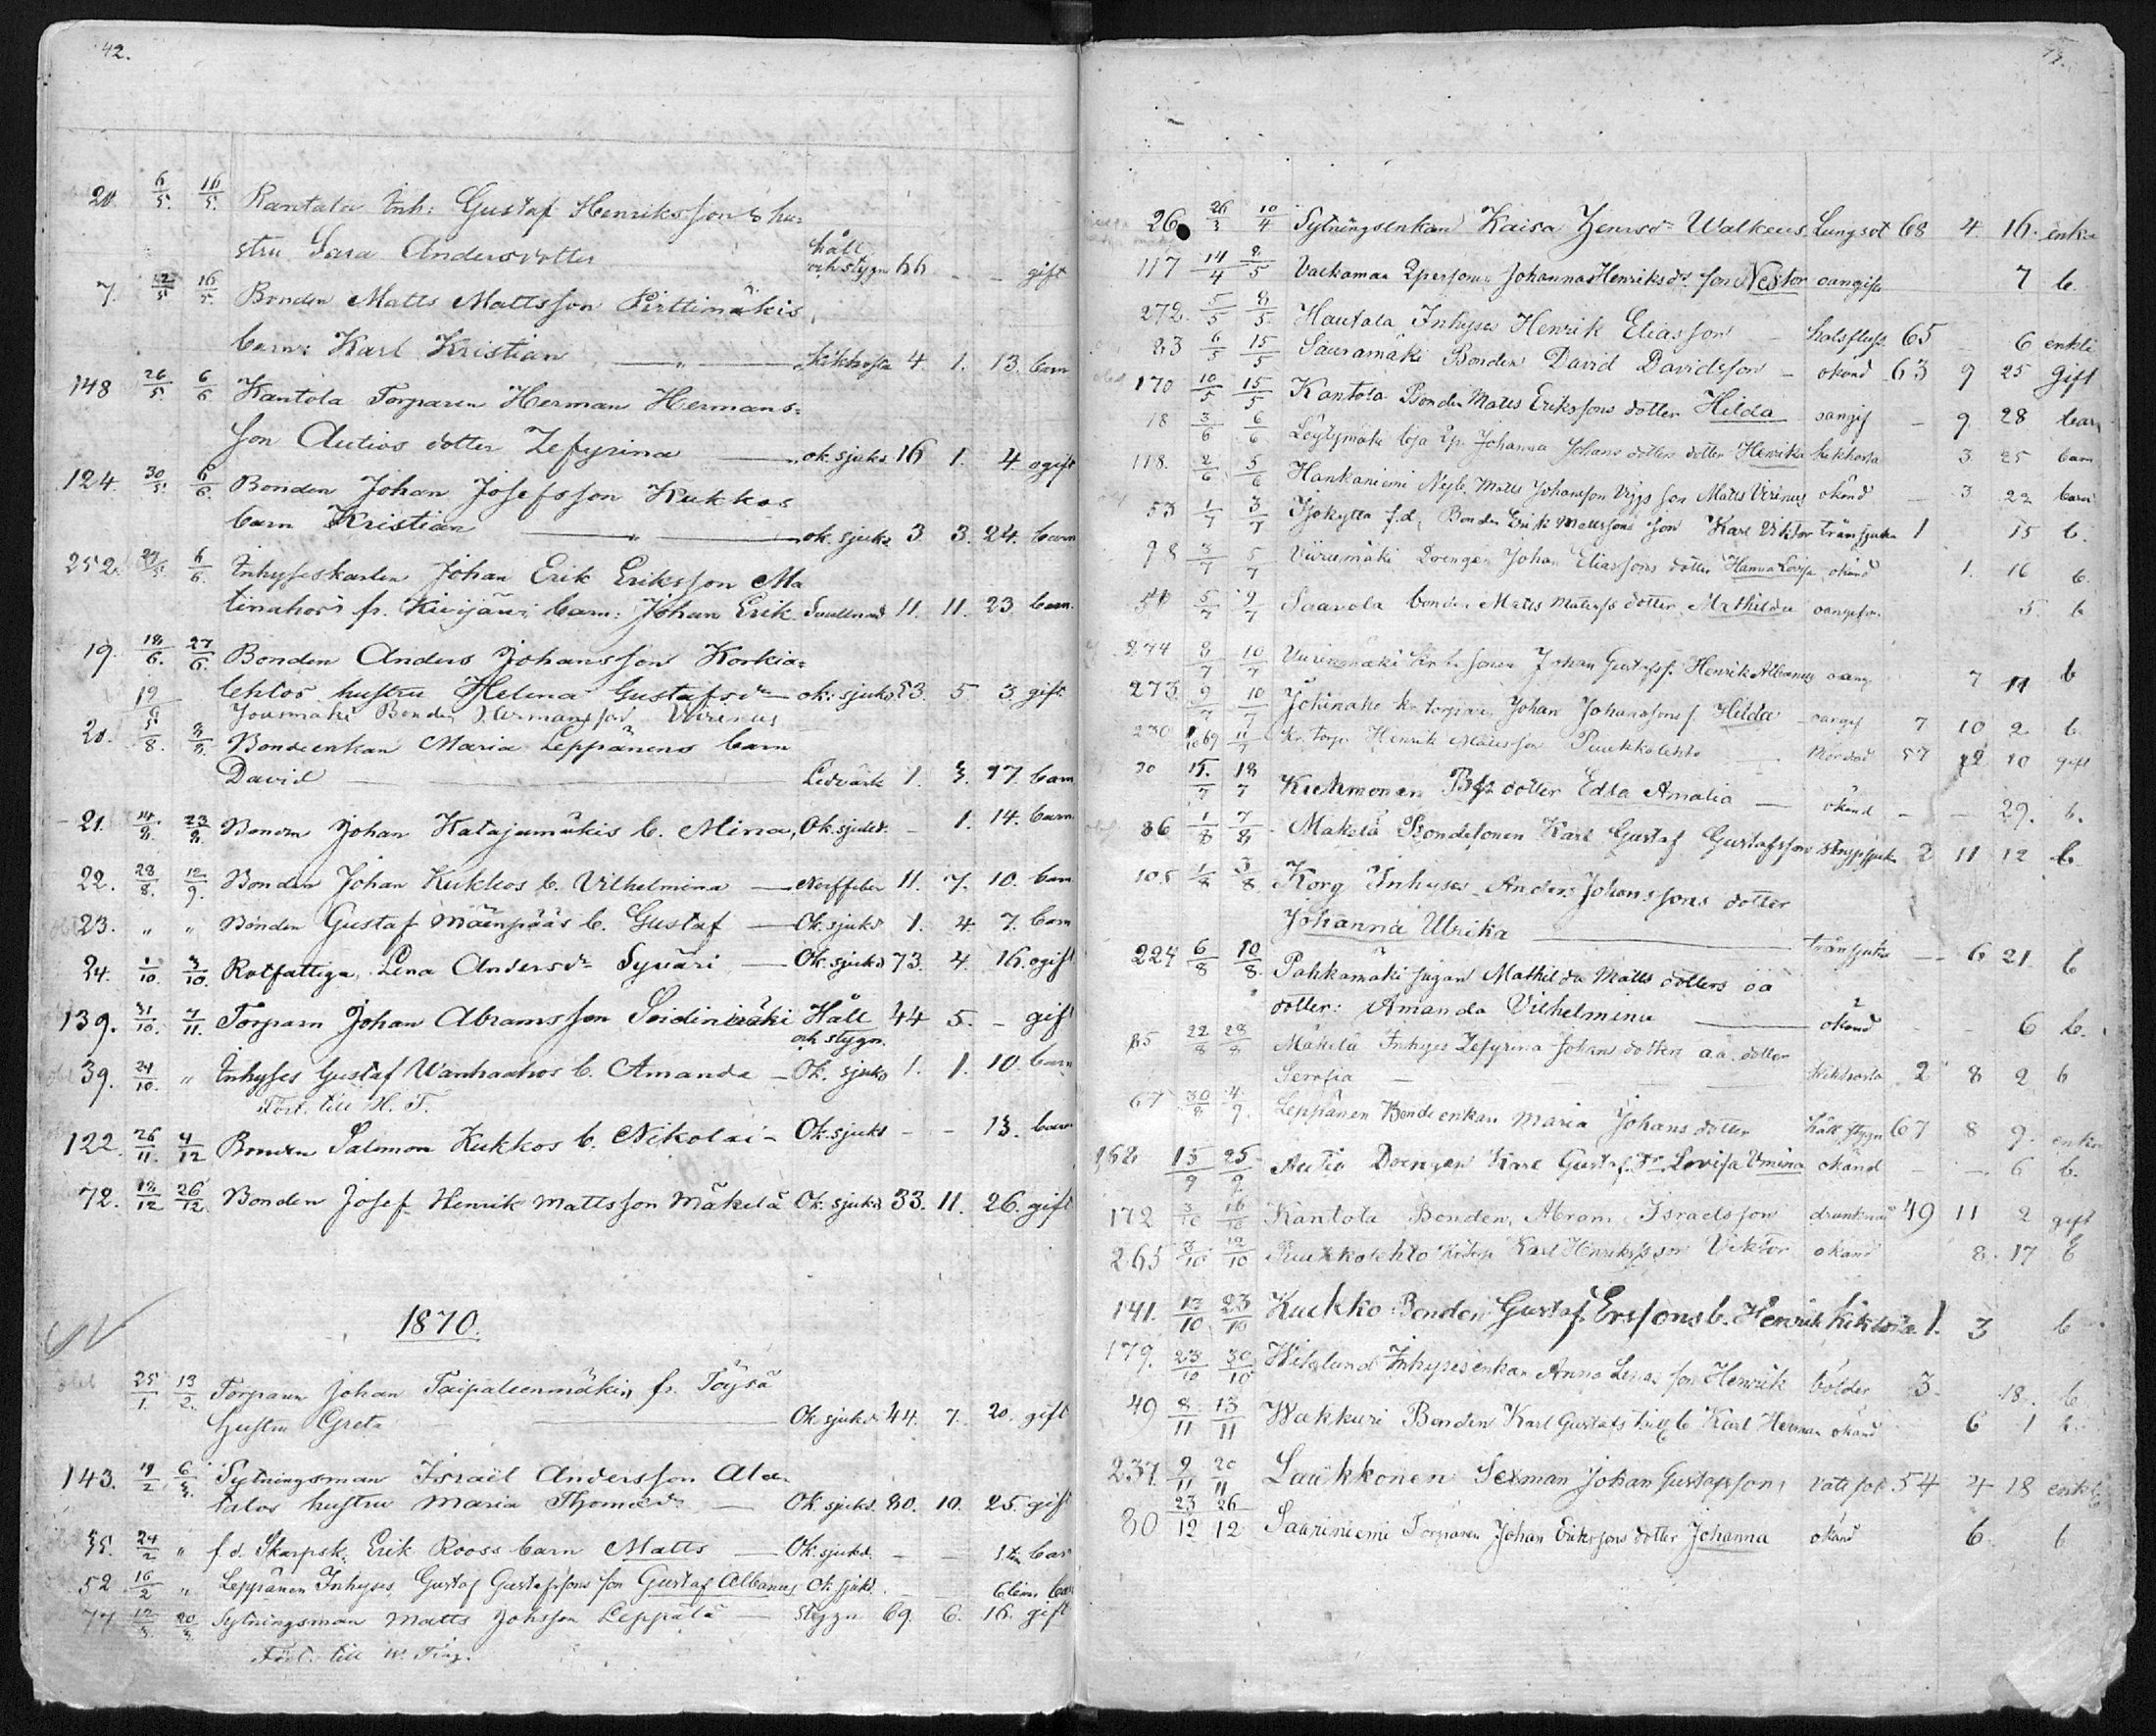 42.
20. 6/5. 16/5. Rantala Inh: Gustaf Henriksson's hu-
stru Sara Andersdotter håll och stygn 66 - - gift
7. 12/5 16/5. Bonden Matts Mattsson Pirttimäkis
barn: Karl Kristian — " — kikhosta 4. 1. 13. barn
148 26/5. 6/6 Kantola Torparen Herman Hermans-
son Autios dotter Zefyrina — ok. sjukd. 16 1. 4. ogift
124. 30/5. 6/6. Bonden Johan Josefsson Kukkos
barn Kristian — " — ok. sjukd. 3. 3. 24. barn
252. 6/6. Inhyseskarlen Johan Erik Eriksson Ma
tinahos fr. Kivijärvi barn: Johan Erik 11. 11. 23. barn.
19. 18/6. 27/6. Bonden Anders Johansson Korkia-
lehtos hustru Helena Gustafsdr — ok. sjukd. 53. 5 3. gift
19/6 Bonden Hermansson Virinus
20. 5/8. Bondeenkan Maria Leppänens barn
David — Ledvärk 1. 3. 17. barn
21. 14/8. 23/8. Bonden Johan Katajamäkis b. Mina, Ok. sjukd. - 1. 14. barn
22. 28/8. 12/9. Bonden Johan Kukkos b. Vilhelmina — Nerffeber 11. 7. 10. barn
23. " " Bonden Gustaf Mäenpääs b. Gustaf — Ok. sjukd 1. 4. 7. barn
24. 1/10. 3/10. Rotfattiga Lena Andersdr Syväri — Ok. sjukd 73. 4. 16. ogift
139. 31/10. 7/11. Torparn Johan Abramsson Soidinmäki Håll och stygn. 44 5. - gift
39. 24/10. " Inhyses Gustaf Wanhaahos b. Amanda — Ok. sjukd 1. 1. 10. barn
Förl. till H. T.
122. 26/11. 4/12 Bonden Salomon Kukkos b. Nikolai — Ok. sjukd - - 13. barn
72. 12/12 26/12. Bonden Josef Henrik Mattsson Mäkelä Ok. sjukd. 33. 11. 26. gift
1870.
25/1. 13/2. Torparen Johan Taipaleenmäkin fr. Töysä
hustru Greta — Ok. sjukd. 44. 7. 20. gift
143. 19/2 6/3. Sytningsman Israël Andersson Ala-
talos hustru Maria Thomædr — Ok. sjukd. 80. 10. 25. gift
35. 24/2 " f.d. Skarpsk. Erik Rooss barn Matts — Ok. sjukd. - - 1 tim barn
52 16/2 " Leppänen Inhyses Gustaf Gustafssons son Gustaf Albanus Ok. sjukd. - 6 tim. barn
77 12/3. 20/3. Sytningsman Matts Johsson Leppälä — Stygn 69. 6. 16. gift
Förl. till W. Ting.
26. 26/3 10/4 Sytningsenkan Kaisa Henrsdr Walkeus Lungsot 68 4. 16. enka
117 14/4 8/5 Vaekamaa Qpersonen Johanna Henriksdrs son Nestor oangifv. 7 b.
272. 5/5 8/5. Hautala Inhyses Henrik Eliasson halsfluss 65 - 6 enkl.
23 6/5 15/5 Sauramäki Bonden David Davidsson — okänd 63 9 25 gift
170 10/5 15/5 Kantola Bonden Matts Erikssons dotter Hilda oangif - 9. 28 barn
18 3/6 6/6. Löylymäki loja Qp. Johanna Johans dotters dotter Henrika kikhosta 3. 25 barn
118. 2/6 5/6 Hankaniemi Nyb. Matts Johansson son Matts Virinus okänd - 3. 22 barn
53 1/7 3/7 Isokytta f.d. Bonden Erik Mattssons son Karl Viktor Trånsjuka 1 15 b.
98 3/7 5/7 Viirumäki Drengen Johan Eliassons dotter Hanna Lovisa okänd 1. 16 b.
5/7 9/7 Saarola bonden Matts Matsss dotter Mathilda oangifv. 5. b
274 8/7 10/7 Johan Gustafss. Henrik Albanus oang 7 11 b
273 9/7 10/7 Jokinahe kr torpare Johan Johanssons f. Hilda oangif 7 10 2. b.
230 11/7 Kr. torp. Henrik Mattsson Puukkolehto Mördad 57 12 10 gift
30 15./7 18/7 Kuhmonen dotter Edla Amalia — okänd - - 29. b.
86 1/8 7/8 Mäkelä Bondesonen Karl Gustaf Gustafsson strypsjuka 2 11 12 b.
105 1/8 3/8 Korg Inhyses Anders Johanssons dotter
Johanna Ulrika — trånsjuka — 6 21. b
224 6/8 10/8. Pahkamäki pigan Mathilda Matts dotters oä
dotter: Amanda Vilhelmina — okänd - 6 b.
85 22/8 28/8 Mäkelä Inhyses Zefyrina Johans dotters oä. dotter
Serafia — kikhosta 2 8 2 b
67 30/8 4/9. Leppänen Bondeenkan Maria Johans dotter håll stygn 67 8 9. enka
262 15/9 25/9. Autio Drengen Karl Gustaf dr Lovisa Vmina okänd - - 6 b.
172 3/10 16/10 Kantola Bonden Abram Israelsson drunknad 49 11 2 gift
265 3/10 12/10 Puukkolehto Kr torp Karl Henrikssson Viktor okänd 8. 17 b
141. 13/10. 23/10 Kukko Bonden Gustaf Erssons b. Henrik kikhosta 1. 3 b
179. 23/10 30/10 Wiklund Inhysesenkan Anna Lenas son Henrik bölder 3. 18. b
49 8/11 13/11 Wakkuri Bonden Karl Gustafs b Karl Herman okänd 6 1 b.
237. 9/11 20/11 Laukkonen Sexman Johan Gustafsson, Vattsot 54 4 18 enkl.
80 23/12 26/12 Saariniemi Torparen Johan Erikssons dotter Johanna okänd 6. b